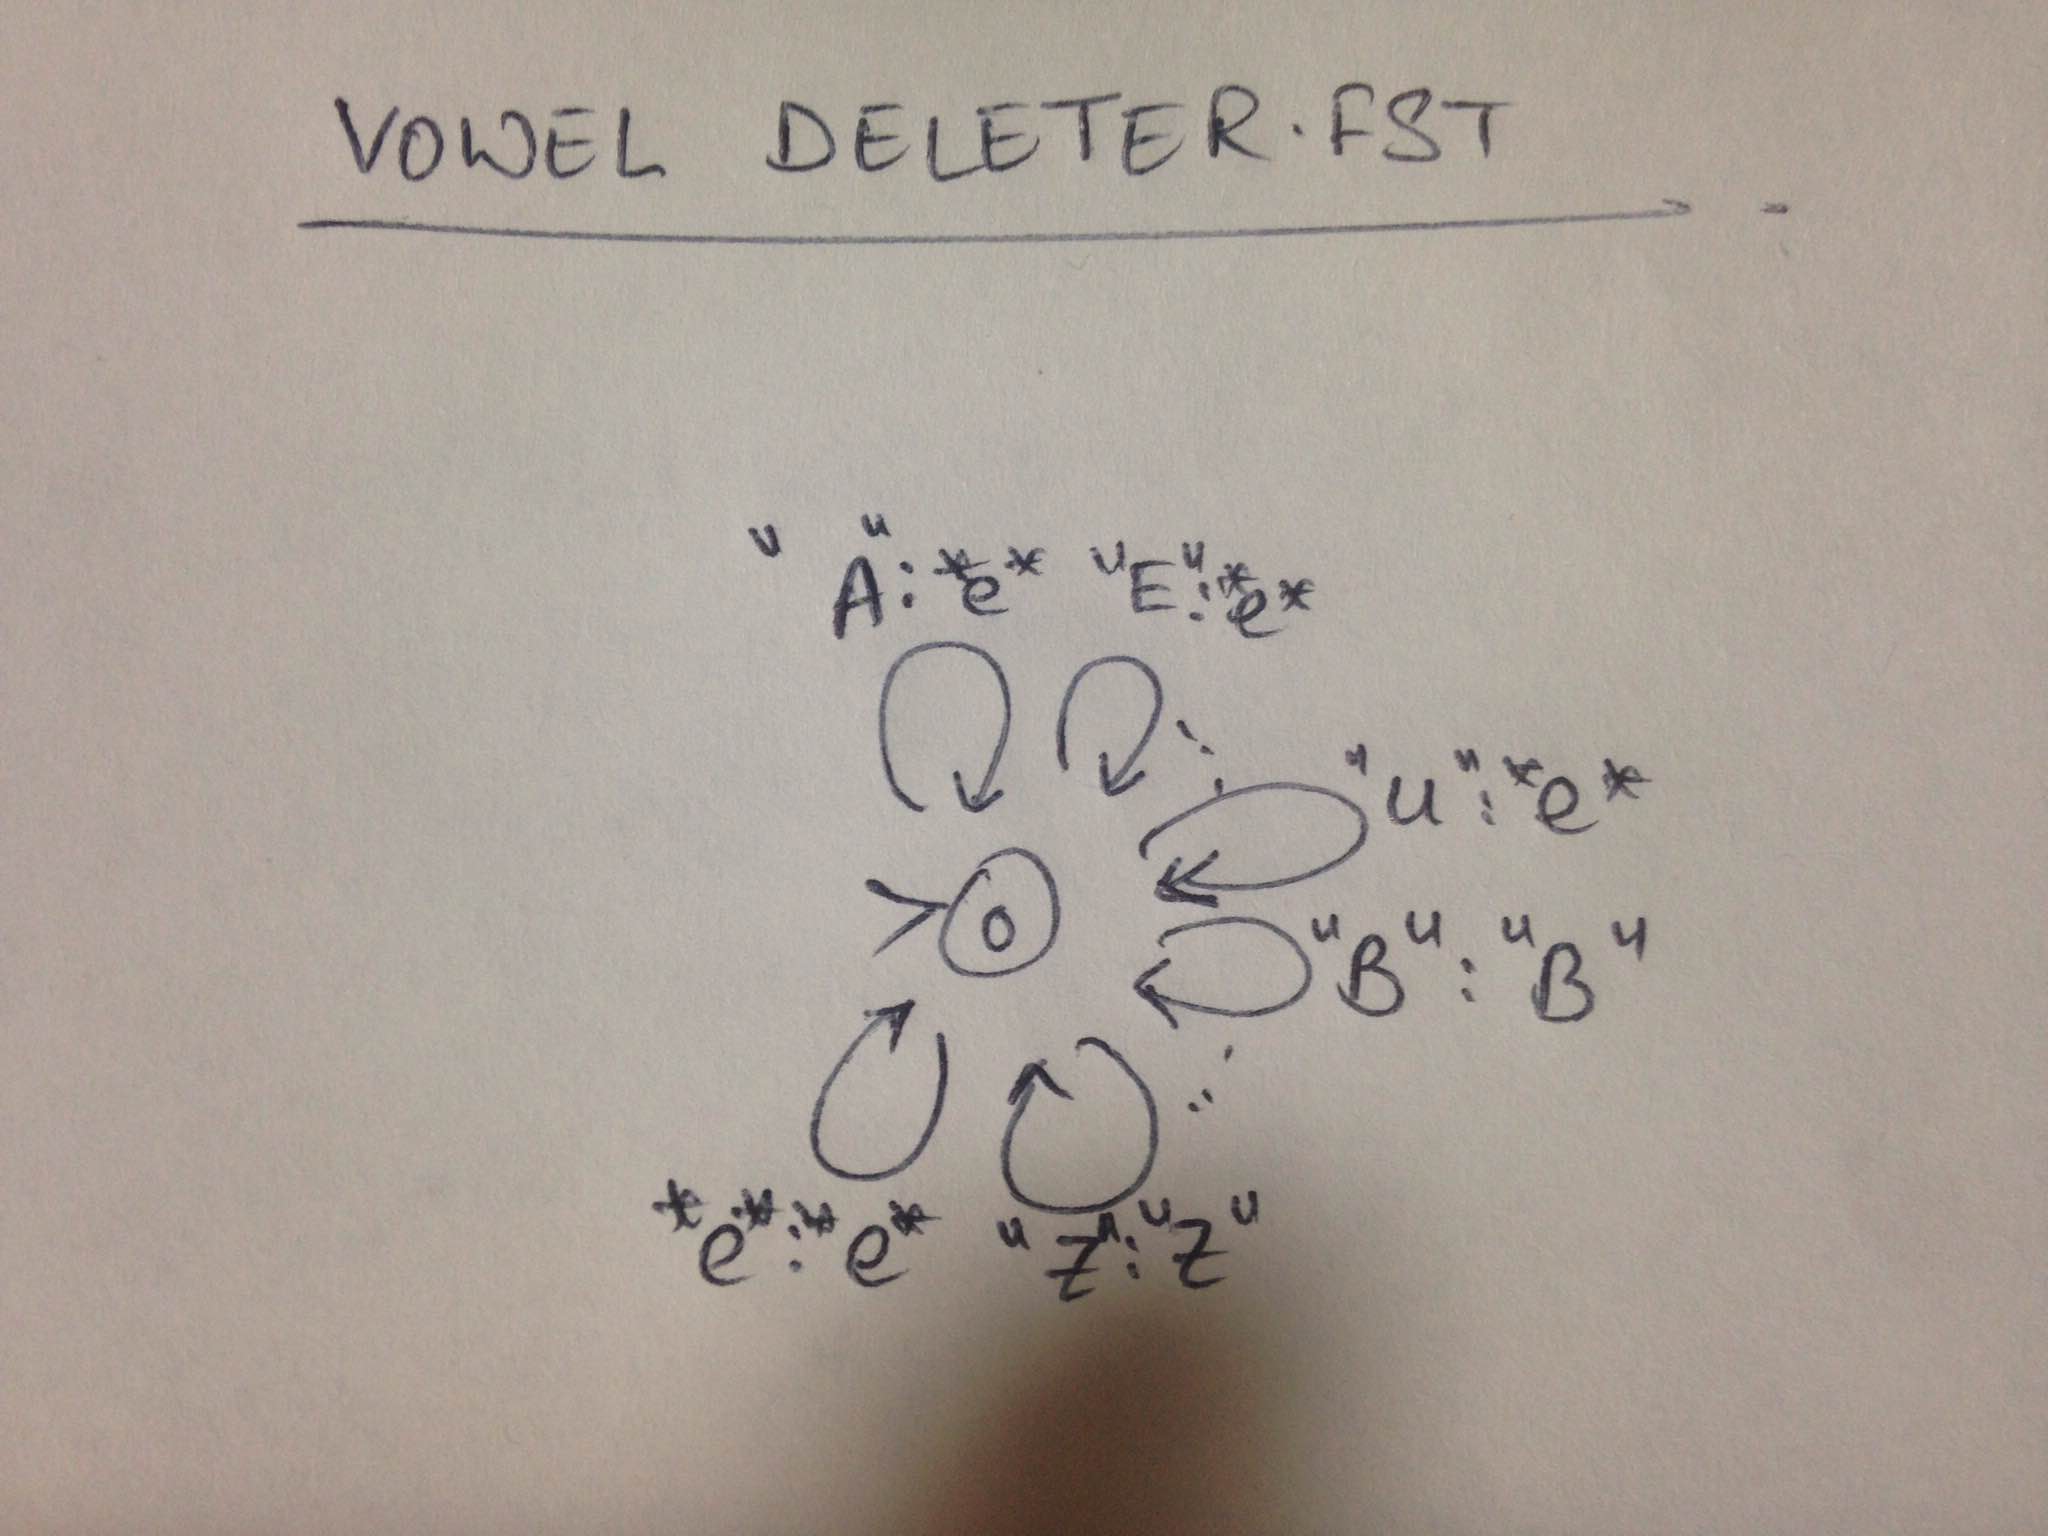 VOWEL DELETER.FST
"A":*e* "E":*e*
"U":*e*
0
"B":"B"
*e*:*e* "Z":"Z"